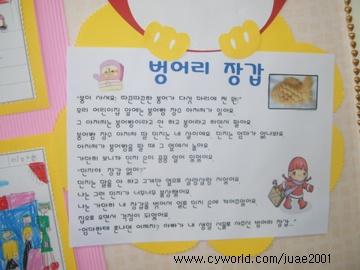 벙어리 장갑
"붕어 사세요! 따끈따끈한 붕어가 다섯 마리에 천 원!"
우리 어린이집 앞에는 붕어빵 장수 아저씨가 있어요
그 아저씨는 붕어빵이라고 안 하고 붕어라고 하면서 팔아요
붕어빵 장수 아저씨 딸 민지는 네 살이에요. 민지는 엄마가 없나봐요
아저씨가 붕어빵을 팔 때 그 옆에서 놀아요
가만히 보니까 민지 손이 꽁꽁 얼어 있었어요
"민지야 장갑 없어?"
민지는 말을 안 하고 고개만 옆으로 살랑살랑 저었어요
나는 그런 민지가 너무너무 불쌍했어요
나는 가만히 내 장갑을 벗어서 얼른 민지 손에 끼워줬어요
집으로 오면서 걱정이 되었어요
"엄마한테 혼나면 어쩌지? 아빠가 내 생일 선물로 사주신 벙어리 장갑.."
www.cyworld.com/juae2001